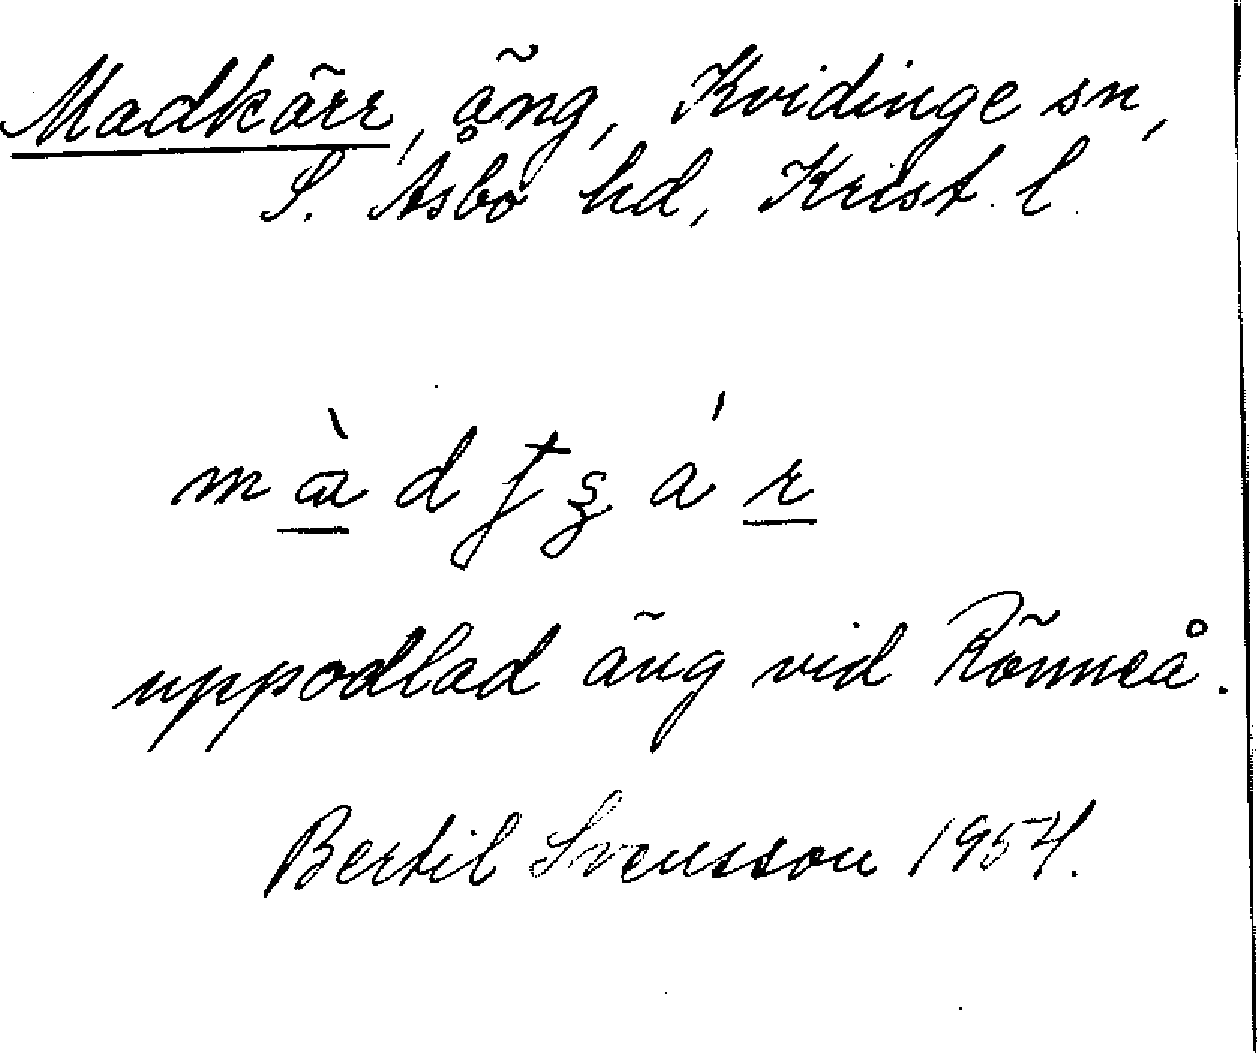 Madkärr, äng, Kvidinge sn,
S. Åsbo hd, Krist. l.
uppodlad äng vid Rönneå.
Bertil Svensson 1954.